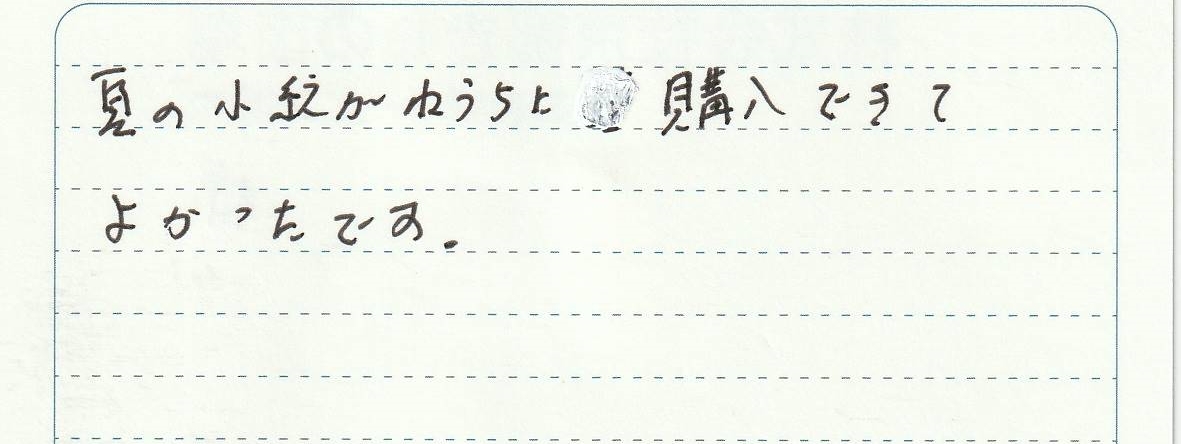 夏の小紋がねうちに購入できて
よかったです.